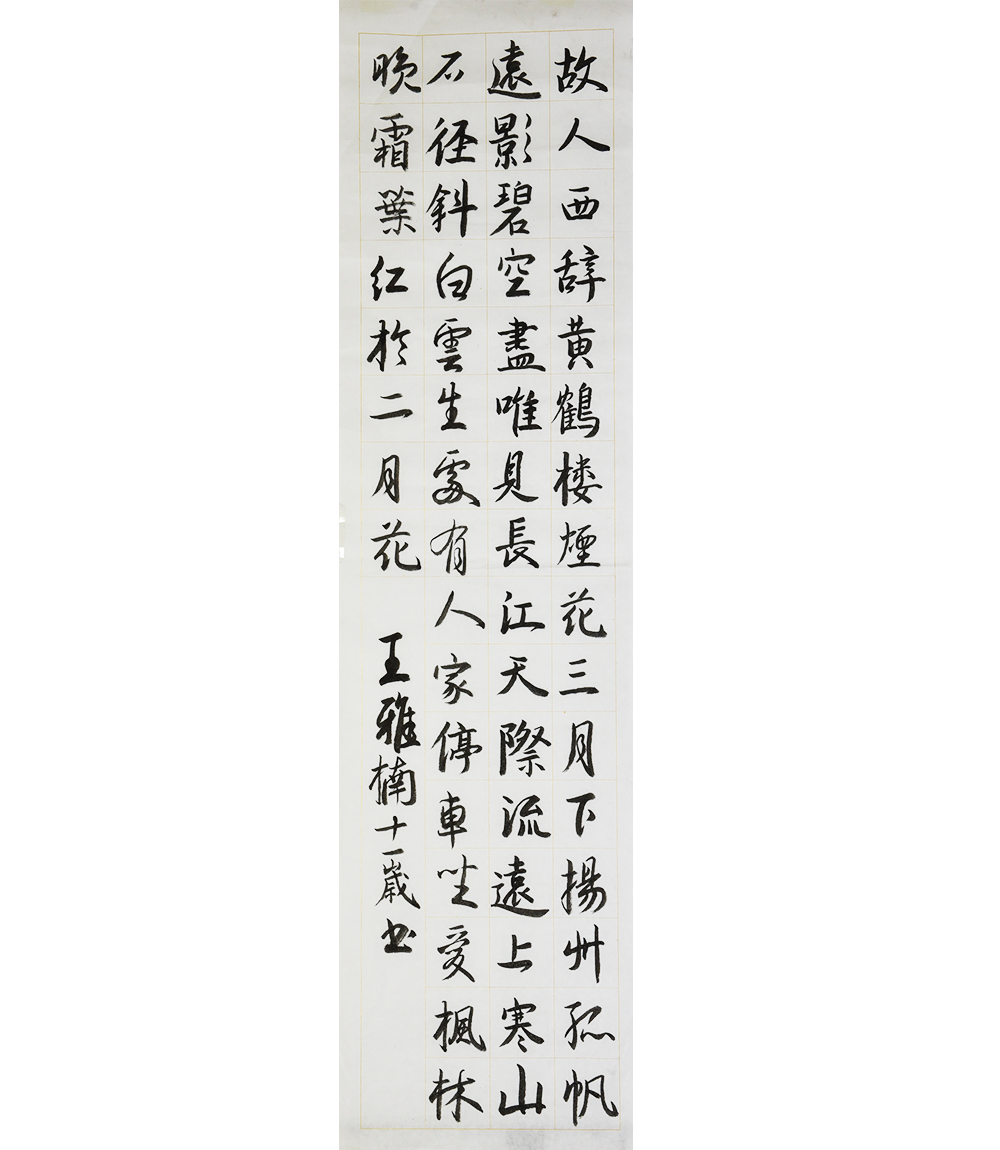 故人西辞黄鶴楼煙花三月下揚州孤帆
遠影碧空盡唯見長江天際流遠上寒山
石径斜白雲生處有人家停車坐愛楓林
晚霜葉红於二月花 王雅楠十一歲书